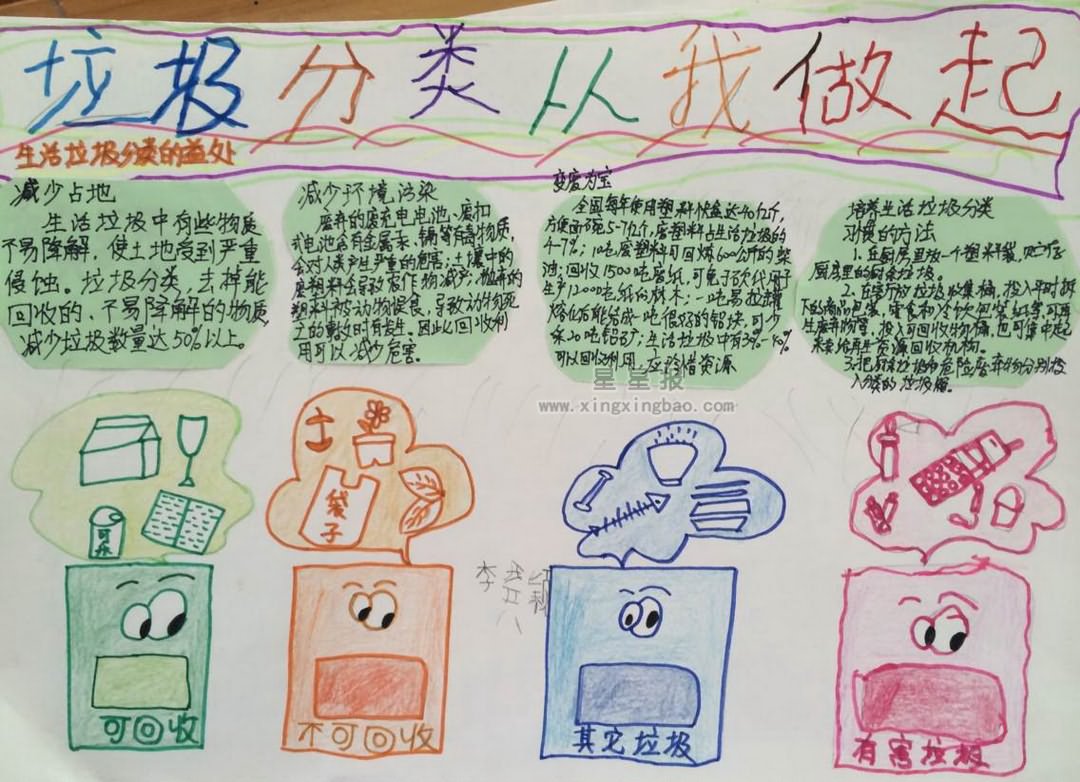 垃圾分类从我做起
生活垃圾分类的益处
减少占地
生活垃圾中有些物质
不易降解，使土地受到严重
侵蚀。垃圾分类，去掉能
回收的、不易降解的物质
减少垃圾数量达50%以上。
减少环境污染
废弃的废充电电池、废扣
式电池含有金属汞、镉等有毒物质，
会对人类产生严重的危害；土壤中的
废塑料会导致农作物减产；抛弃的
塑料被动物误食，导致动物死
亡的事故时有发生。因此回收利
用可以减少危害。
变废为宝
全国每年使用塑料快盒达40亿斤，
方便面碗5-7亿斤，废塑料占生活垃圾的
4-7%；10吨废塑料可回炼600公斤的柴
油；回收1500吨废纸，可免于砍伐用于
生产1200吨纸的林木；一吨易拉罐
熔化后能结成一吨很好的铝块，可少
采20吨铝矿；生活垃圾中有30%-40%
可以回收利用，应珍惜资源
培养生活垃圾分类
习惯的方法
1.在厨房里放一个塑料袋，
厨房里的厨余垃圾。
2.在客厅放垃圾收集桶，投入平时拆
下的商品包装，
生废弃物等，投入可回收物桶，也可集中起
来卖给再生资源回收机构。
3.把厨余垃圾和危险废弃物分别投
入分类的垃圾桶。
星星报
www.xingxingbao.com
袋
子
可
乐
李
可回收
不可回收
其它垃圾
有害垃圾